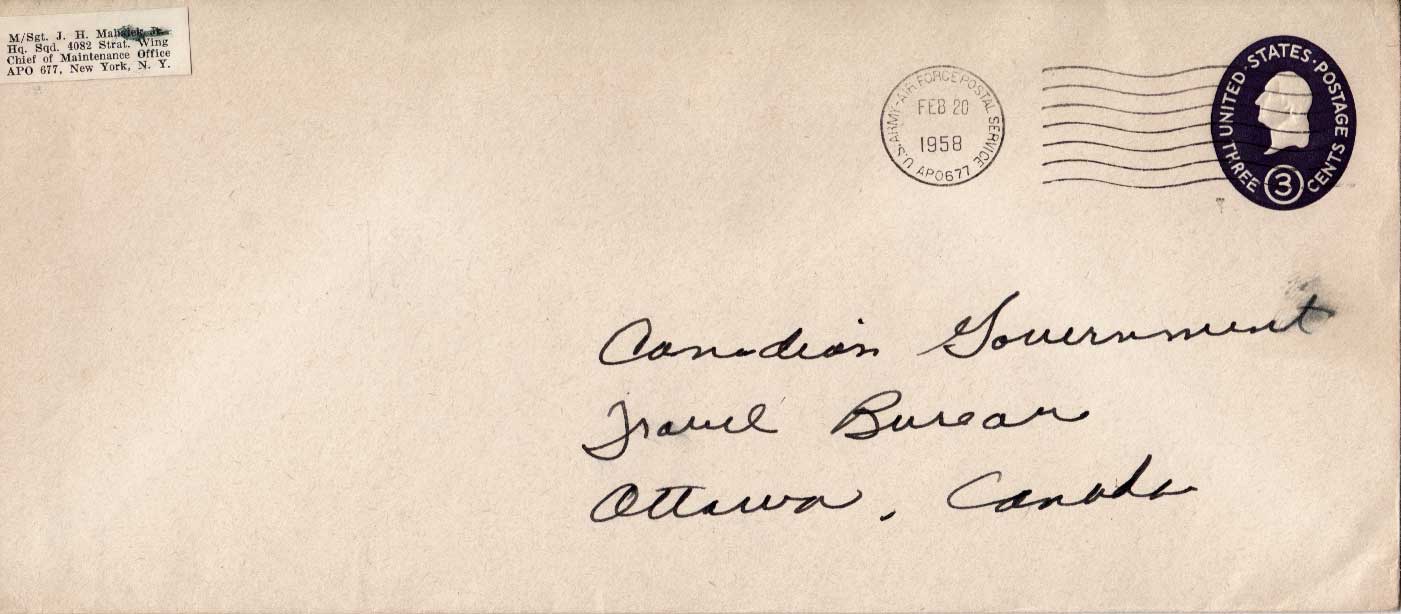 M/Sgt. J. H.
Hq. Sqd. 4082 Strat. Wing
Chief of Maintenance Office
APO 677, New York, N. Y.
U.S. ARMY-AIR FORCE POSTAL SERVICE
FEB 20
1958
APO 677
UNITED STATES POSTAGE
THREE 3 CENTS
Canadian Government
Travel Bureau
Ottawa, Canada